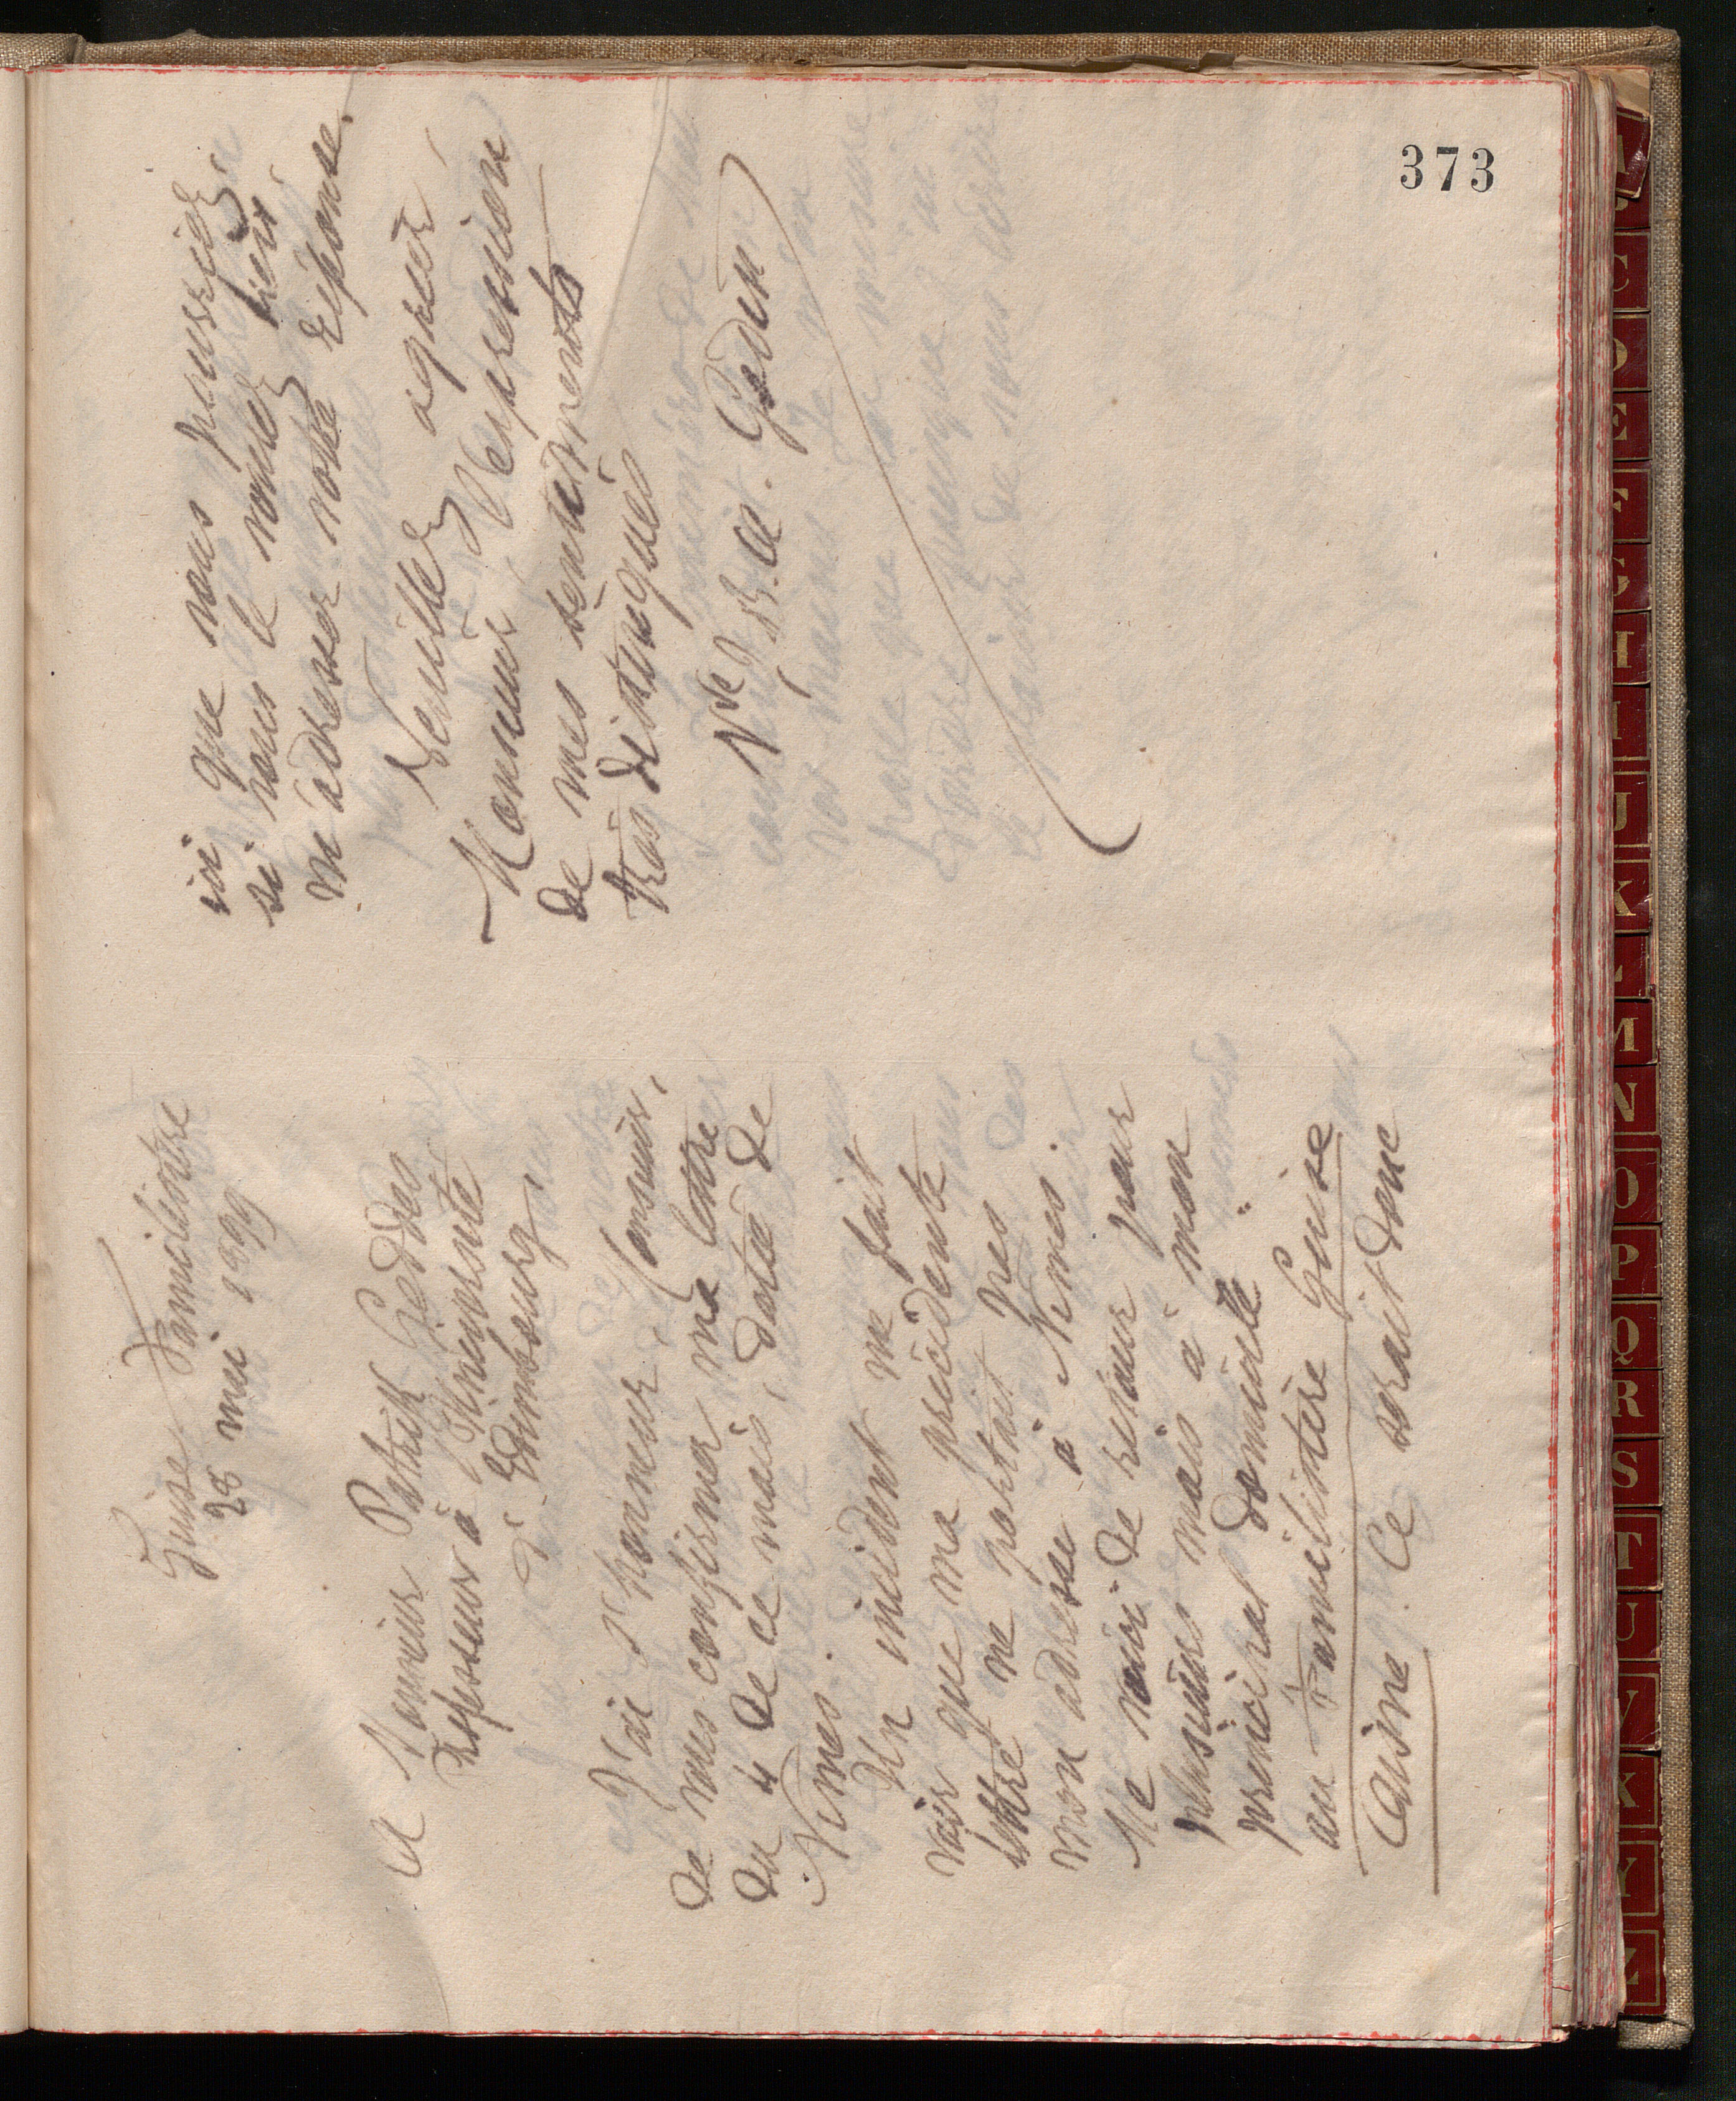 373
Guise Familistère
28 mai 1899
A Monsieur Patrick Geddes
Professeur à l'Université
d'Edimbourg,
Monsieur,
J'ai l'honneur
de vous confirmer ma lettre
du 4 de ce mois, datée de
Nîmes.
Un incident me fait
voir que ma précédente
lettre ne portait pas
mon adresse à Nîmes
Me voici de retour pour
plusieurs mois à mon
principal domicile
au Familistère Guise
Aisne. Ce serait donc
ici que vous pourriez,
si vous le voulez bien,
m'adresser votre réponse.
Veuillez agréer
Monsieur, l'expression
de mes sentiments
très distingués
Vve J. B. A. Godin
A
C
D
E
F
G
H
I
J
K
L
M
N
O
P
Q
R
S
T
U
V
X
Y
Z